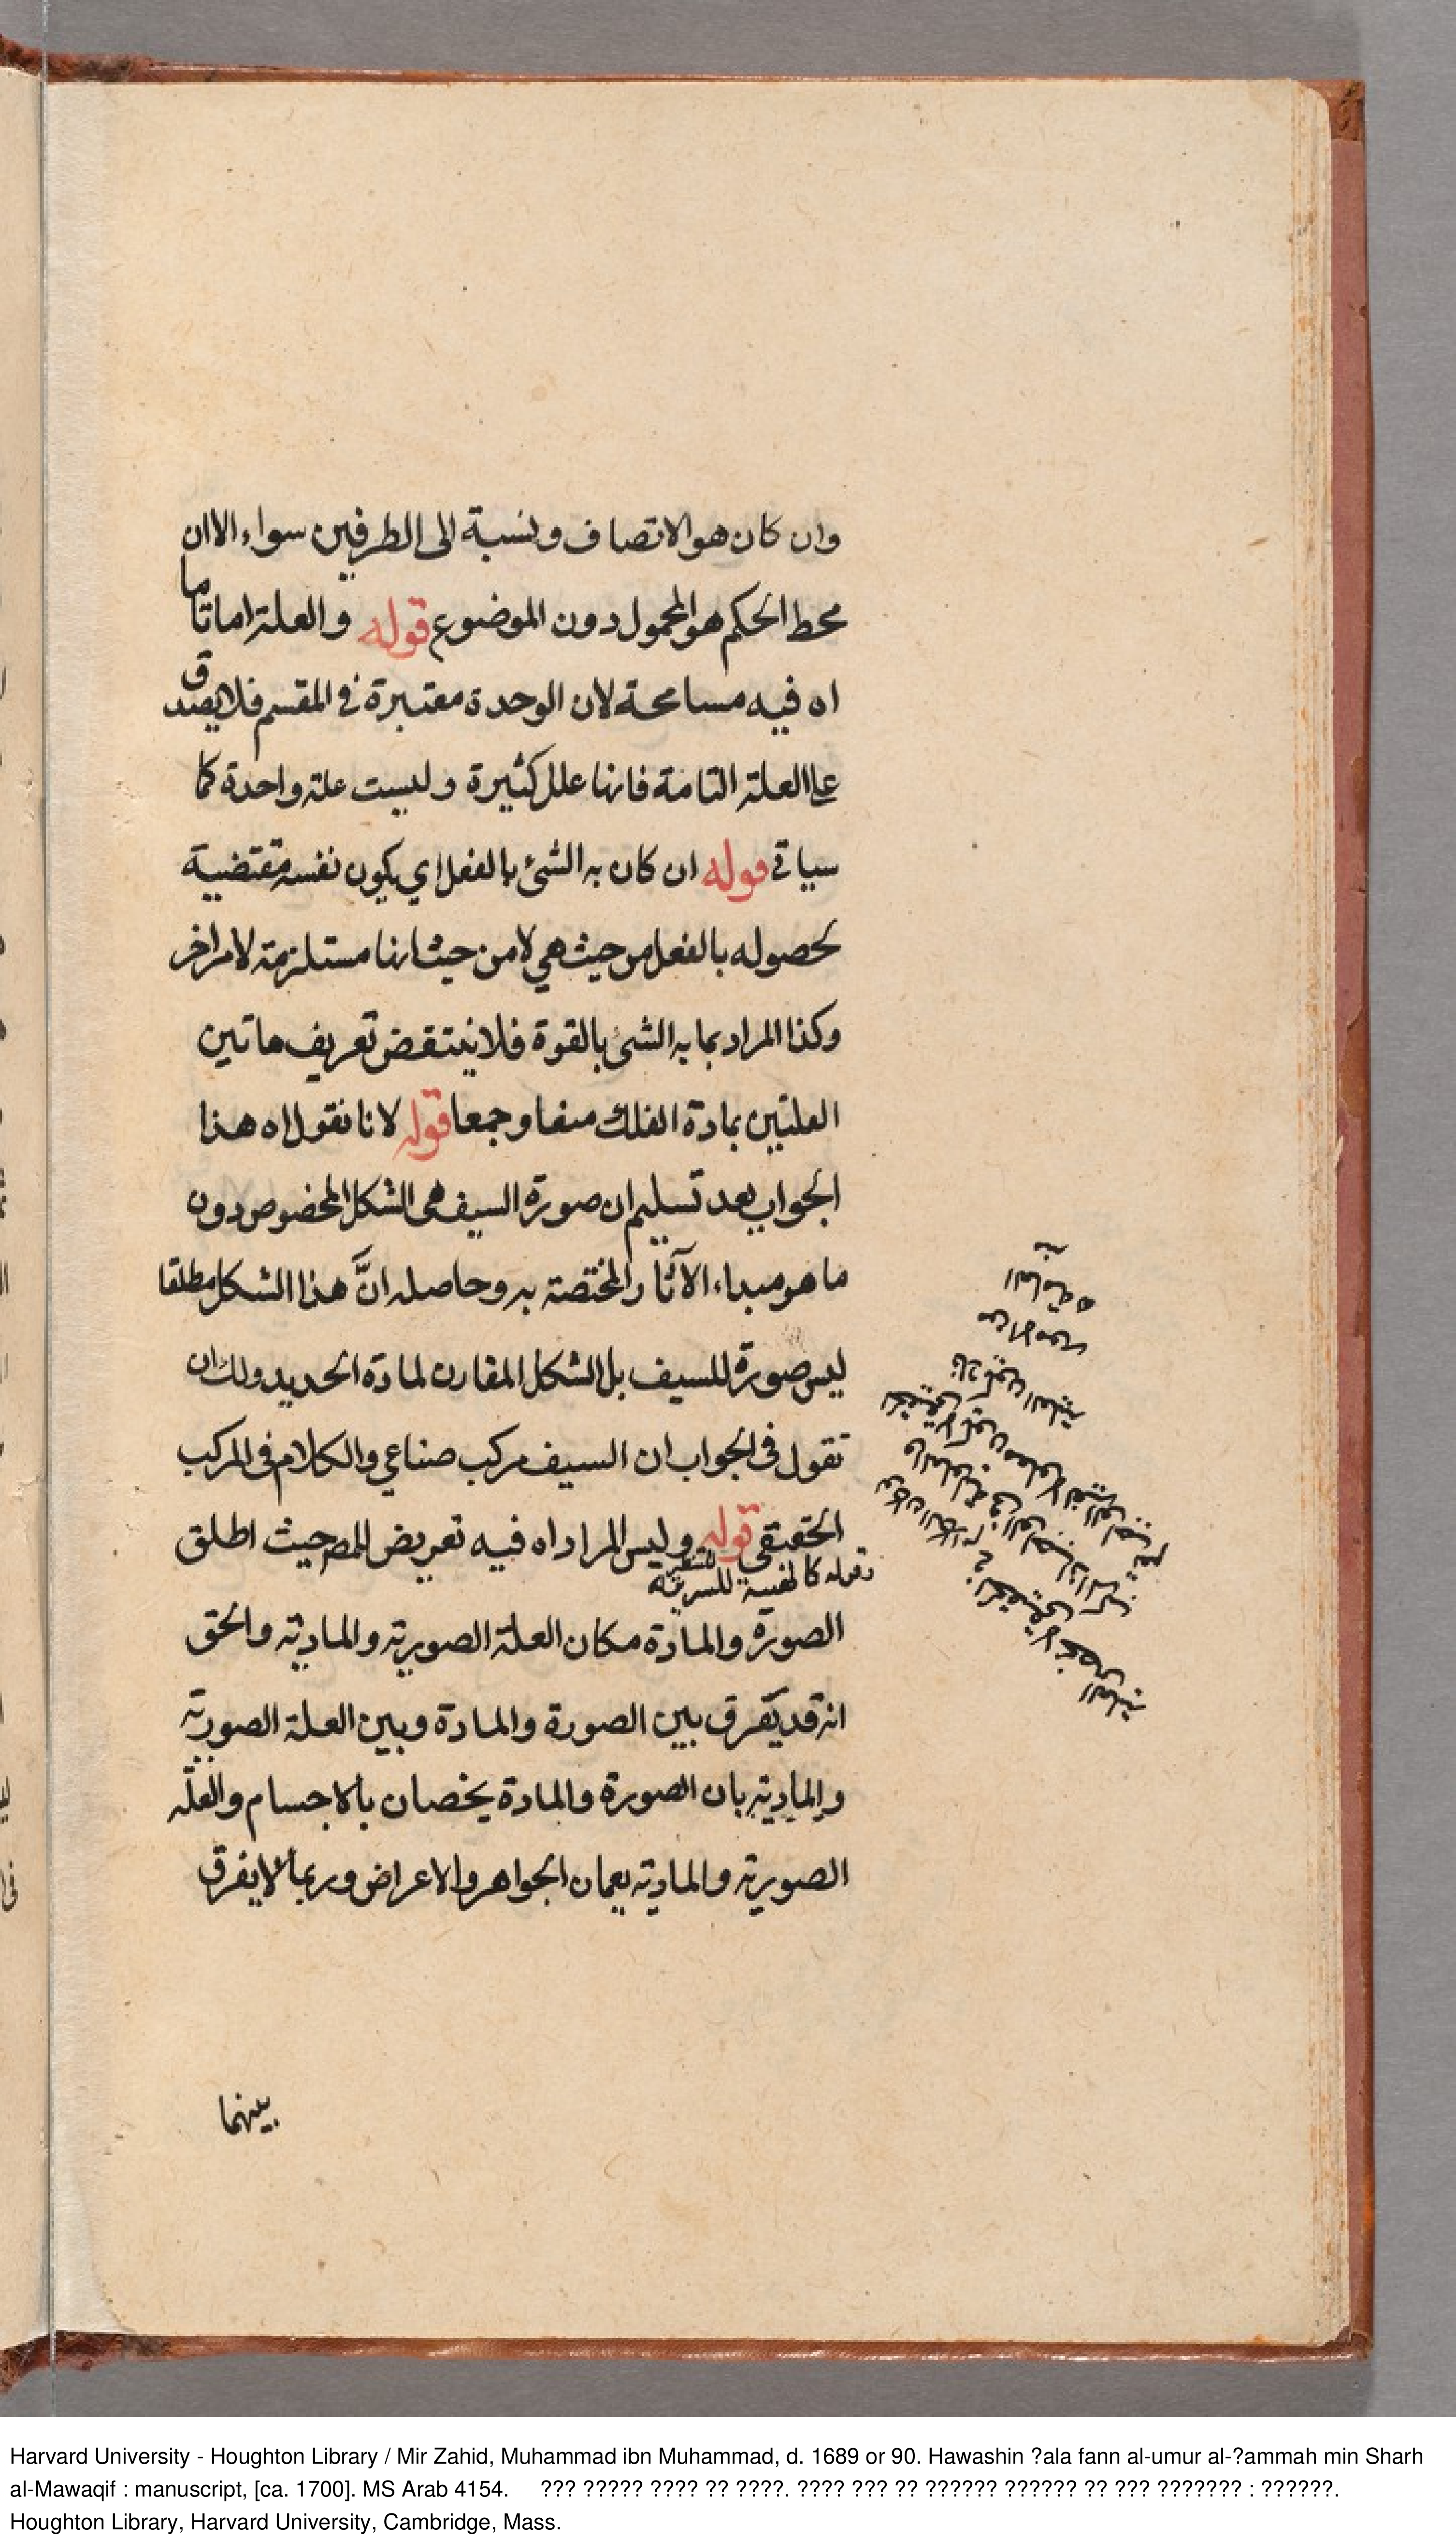 وان كان هو الاتصاف ونسبة الى الطرفين سواء الا ان
محط الحكم هو المحمول دون الموضوع قوله والعلة اما تامة
اه فيه مسامحة لان الوحدة معتبرة في المقسم فلا يصدق
على العلة التامة فانها علل كثيرة وليست علة واحدة كما
سياتي قوله ان كان به الشئ بالفعل اي يكون نفسه مقتضية
لحصوله بالفعل من حيث هي لا من حيث انها مستلزمة لامر اخر
وكذا المراد بما به الشئ بالقوة فلا ينتقض تعريف هاتين
العلتين بمادة الفلك منعا وجمعا قوله لانا نقول اه هذا
الجواب بعد تسليم ان صورة السيف هي الشكل المخصوص دون
ما هو مبداء الآثار المختصة به وحاصله انَّ هذا الشكل مطلقا
ليس صورة للسيف بل الشكل المقارن لمادة الحديد ولك ان
تقول في الجواب ان السيف مركب صناعي والكلام في المركب
الحقيقي قوله وليس المراد اه فيه تعريض للمص حيث اطلق
الصورة والمادة مكان العلة الصورية والمادية والحق
انه قد يفرق بين الصورة والمادة وبين العلة الصورية
والمادية بان الصورة والمادة يخصان بالاجسام والعلّة
الصورية والمادية يعمان الجواهر والاعراض وربما لا يفرق
بينهما
Harvard University - Houghton Library / Mir Zahid, Muhammad ibn Muhammad, d. 1689 or 90. Hawashin ?ala fann al-umur al-?ammah min Sharh
al-Mawaqif : manuscript, [ca. 1700]. MS Arab 4154. ??? ????? ???? ?? ????. ???? ??? ?? ?????? ?????? ?? ??? ??????? : ??????.
Houghton Library, Harvard University, Cambridge, Mass.